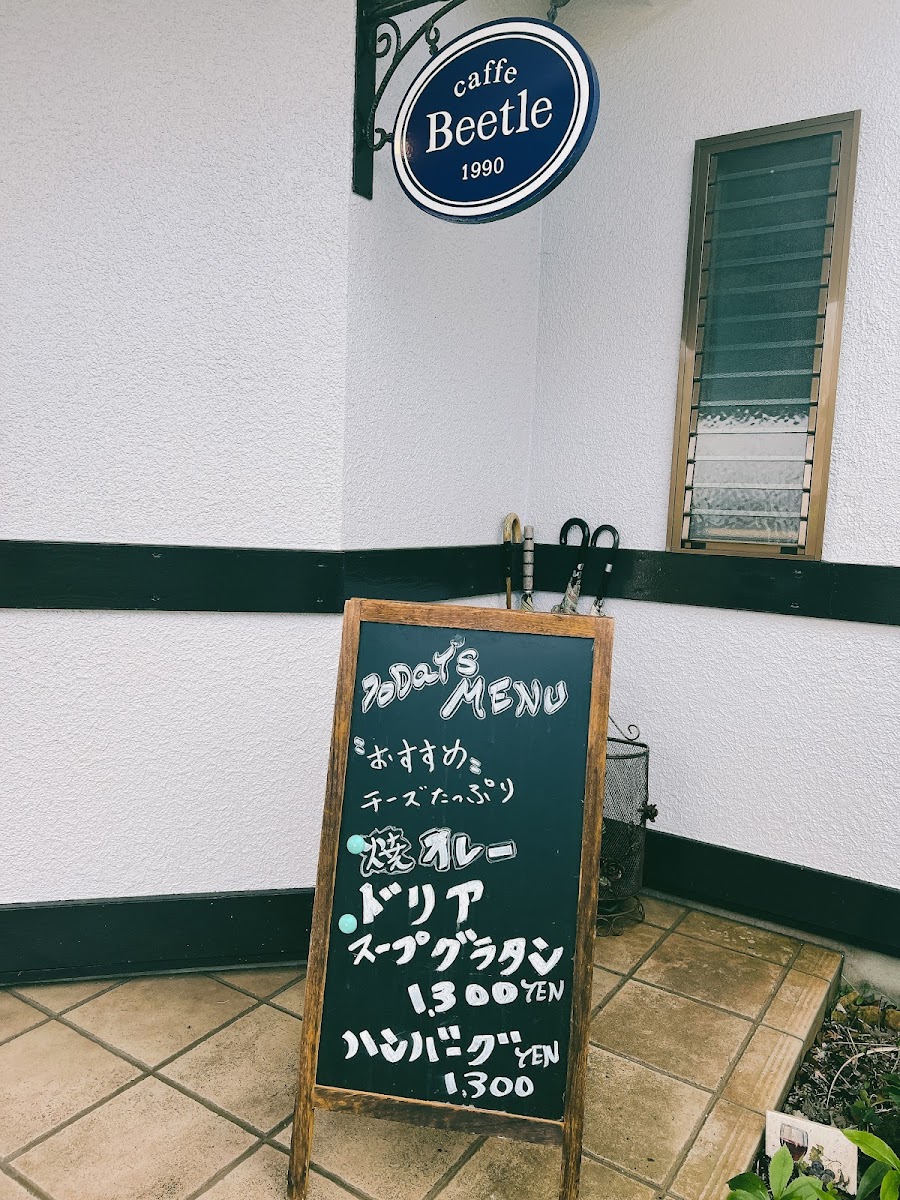 caffe
Beetle
1990
TODAY'S
MENU
おすすめ
チーズたっぷり
焼オレー
ドリア
スープグラタン
1,300YEN
ハンバーグ YEN
1,300